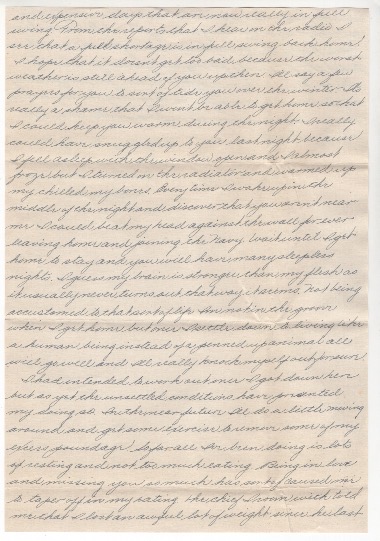 and expensive days that are now really in full
swing. From the reports that I hear on the radio I
see that a fuel shortage is in full swing back home.
I hope that it doesn't get too bad because the worst
weather is still ahead of you up there. I'll say a few
prayers for you to sort of tide you over the winter. It's
really a shame that I won't be able to get home so that
I could keep you warm during the night. I really
could have snuggled up to you last night because
I fell asleep with the window open and I almost
froze but I turned on the radiator and warmed up
my chilled my bones. Everytime I wake up in the
middle of the night and discover that you aren't near
me I could beat my head against the wall for ever
leaving home and joining the Navy. Wait until I get
home to stay and you will have many sleepless
nights. I guess my brain is stronger than my flesh as
it usually never turns out that way it seems, not being
accustomed to that sort of life I'm not in the groove
when I get home, but once I settle down to living like
a human being instead of a penned up animal all
will go well and I'll really knock myself out for sure.
I had intended to work out once I got down here
but as yet the unsettled conditions have prevented
my doing so. In the near future I'll do a little moving
around and get some exercise to remove some of my
excess poundage. So far all I've been doing is lots
of resting and not too much eating. Being in love
and missing you so much has sort of caused me
to taper off in my eating. The chief I room with told
me that I lost an awful lot of weight since he last